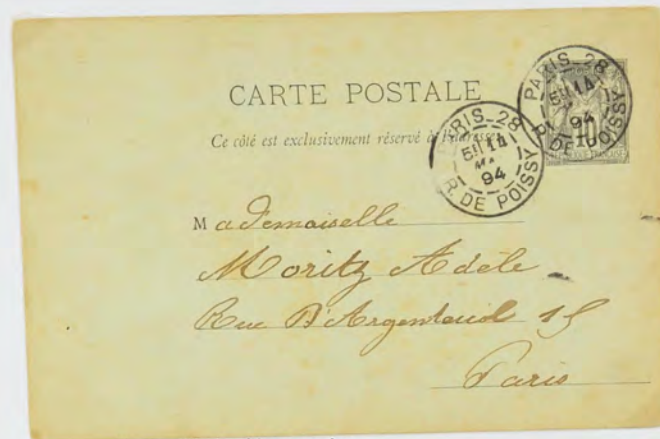 CARTE POSTALE
Ce côté est exclusivement réservé à l'adresse
PARIS_28
5E 14
94
R. DE POISSY
PARIS_28
5E 14
94
R. DE POISSY
10
Mademoiselle
Moritz Adèle
Rue D'Argenteuil 15
Paris